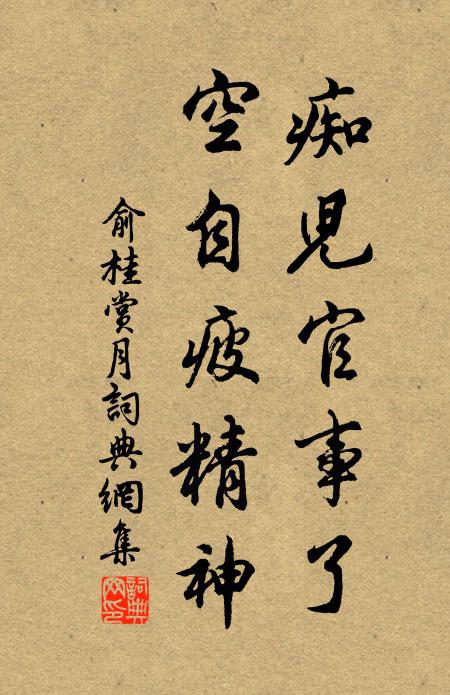 痴児官事了
空自疲精神
俞桂賞月詞典網集
詞典网印